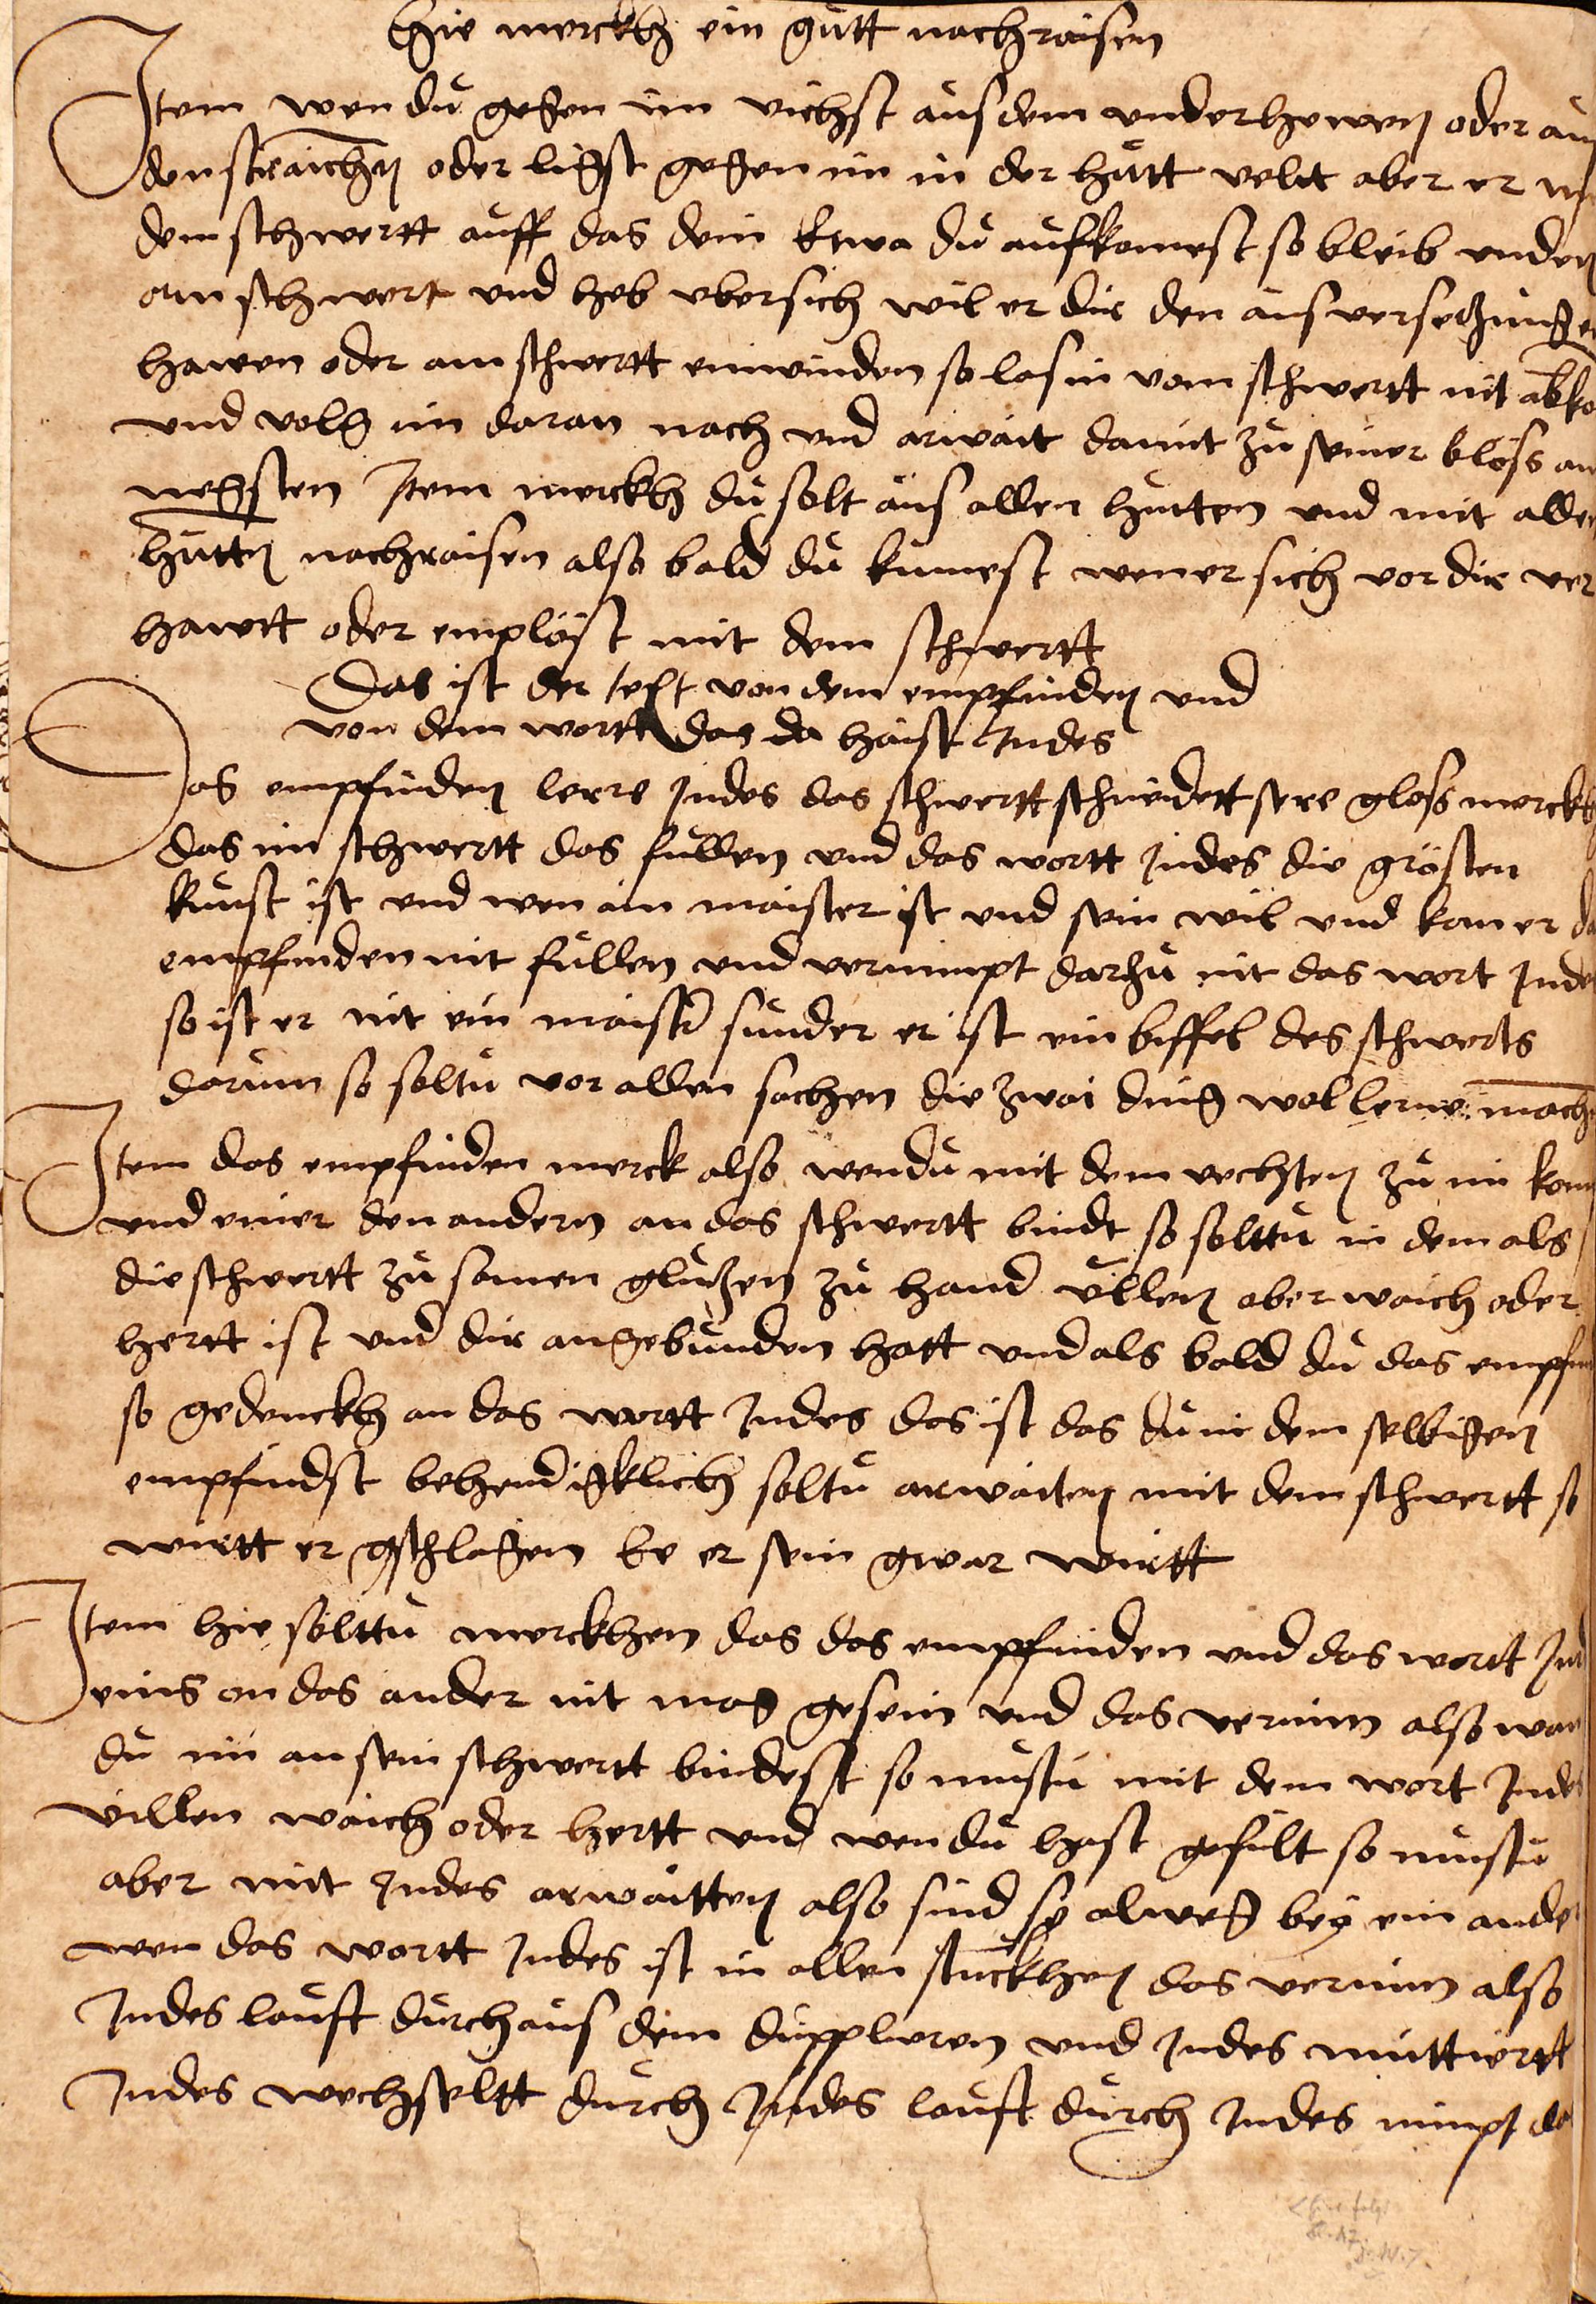 Hie merckh ein gutt nachraisen
Item wen du gegen im vichst aus dem underhewen oder aus
den straichen oder ligst gegen im in der hütt velt aber er mit
dem schwertt auff das dein Ee wa du aufkomest so bleib unden
am schwert und heb ubersich wil er dir den aus versetzung ein
hawen oder am schwertt einwinden so las in vom schwertt nit abko
und volg im daran nach und arwait damit zu seiner blöss am
negsten Item merckh du solt aus allen hütten und mit allen
hütten nachraisen also bald du kumest wen er sich vor dir ver
hawtt oder emplöst mit dem schwertt
Das ist der text von dem empfinden und
von dem wortt das da haist Indes
Das empfinden lerre Indes das schwertt schneidett sere gloss merckh
das im schwertt das füllen und das wortt Indes die grösten
kunst ist und wen ain maister ist und sein wil und kan er das
empfinden nit füllen und vernimpt darzu nit das wort Indes
so ist er nit ein maister sunder er ist ein biffel des schwerts
darum so soltu vor allen sachen die zwai ding wol lerne
Item das empfinden merck also wen du mit dem vechten zu im kom
und einer den andern an das schwertt bindt so solttu in dem als
die schwertt zu samen glutzen zu hand üllen aber waich oder
hertt ist und dir angebunden hatt und als bald du das empfin
so gedenckh an das wortt Indes das ist das du in dem selbigen
empfindst behendigklich soltu arwaiten mit dem schwertt so
wirtt er gschlagen Ee er sein gwar wirtt
Item hie solttu merckhen das das empfinden und das wortt Ind
eins on das ander nit mag gesein und das vernim also wan
du im an sein schwertt bindest so mustu mit dem wort Indes
villen waich oder hertt und wen du hast gefült so mustu
aber mit Indes arwaitten also sind sy alweg bey ein ander
wen das wortt Indes ist in allen stuckhen das vernim also
Indes lauft durchaus dem duppliren und Indes muttiertt
Indes wechseltt durch Indes lauft durch Indes nimpt de